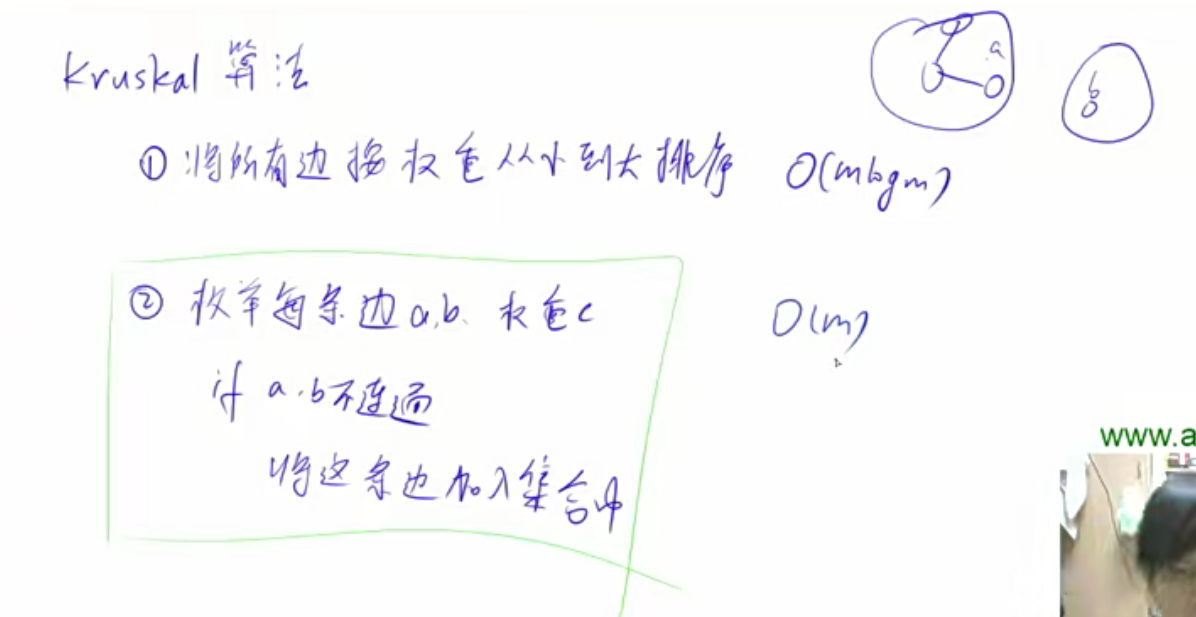 Kruskal 算法
a
b
① 将所有边按权重从小到大排序 O(mlogm)
② 枚举每条边a,b、权重c O(m)
if a,b不连通
将这条边加入集合中
www.a